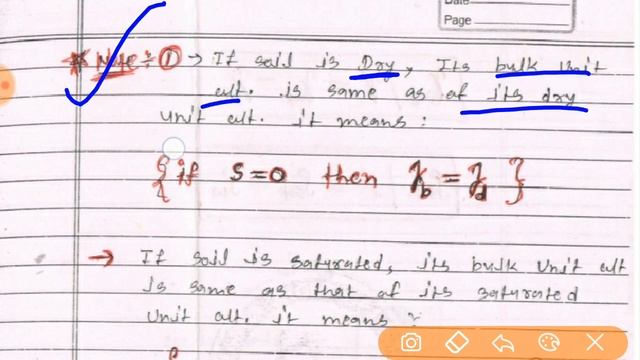 Date
Page
* Note :- ① → If soil is Dry, Its bulk Unit
wt. is same as of its dry
Unit wt. it means :
{ if S=0 then γb = γd }
→ If soil is saturated, its bulk Unit wt
is same as that of its saturated
Unit wt. it means :